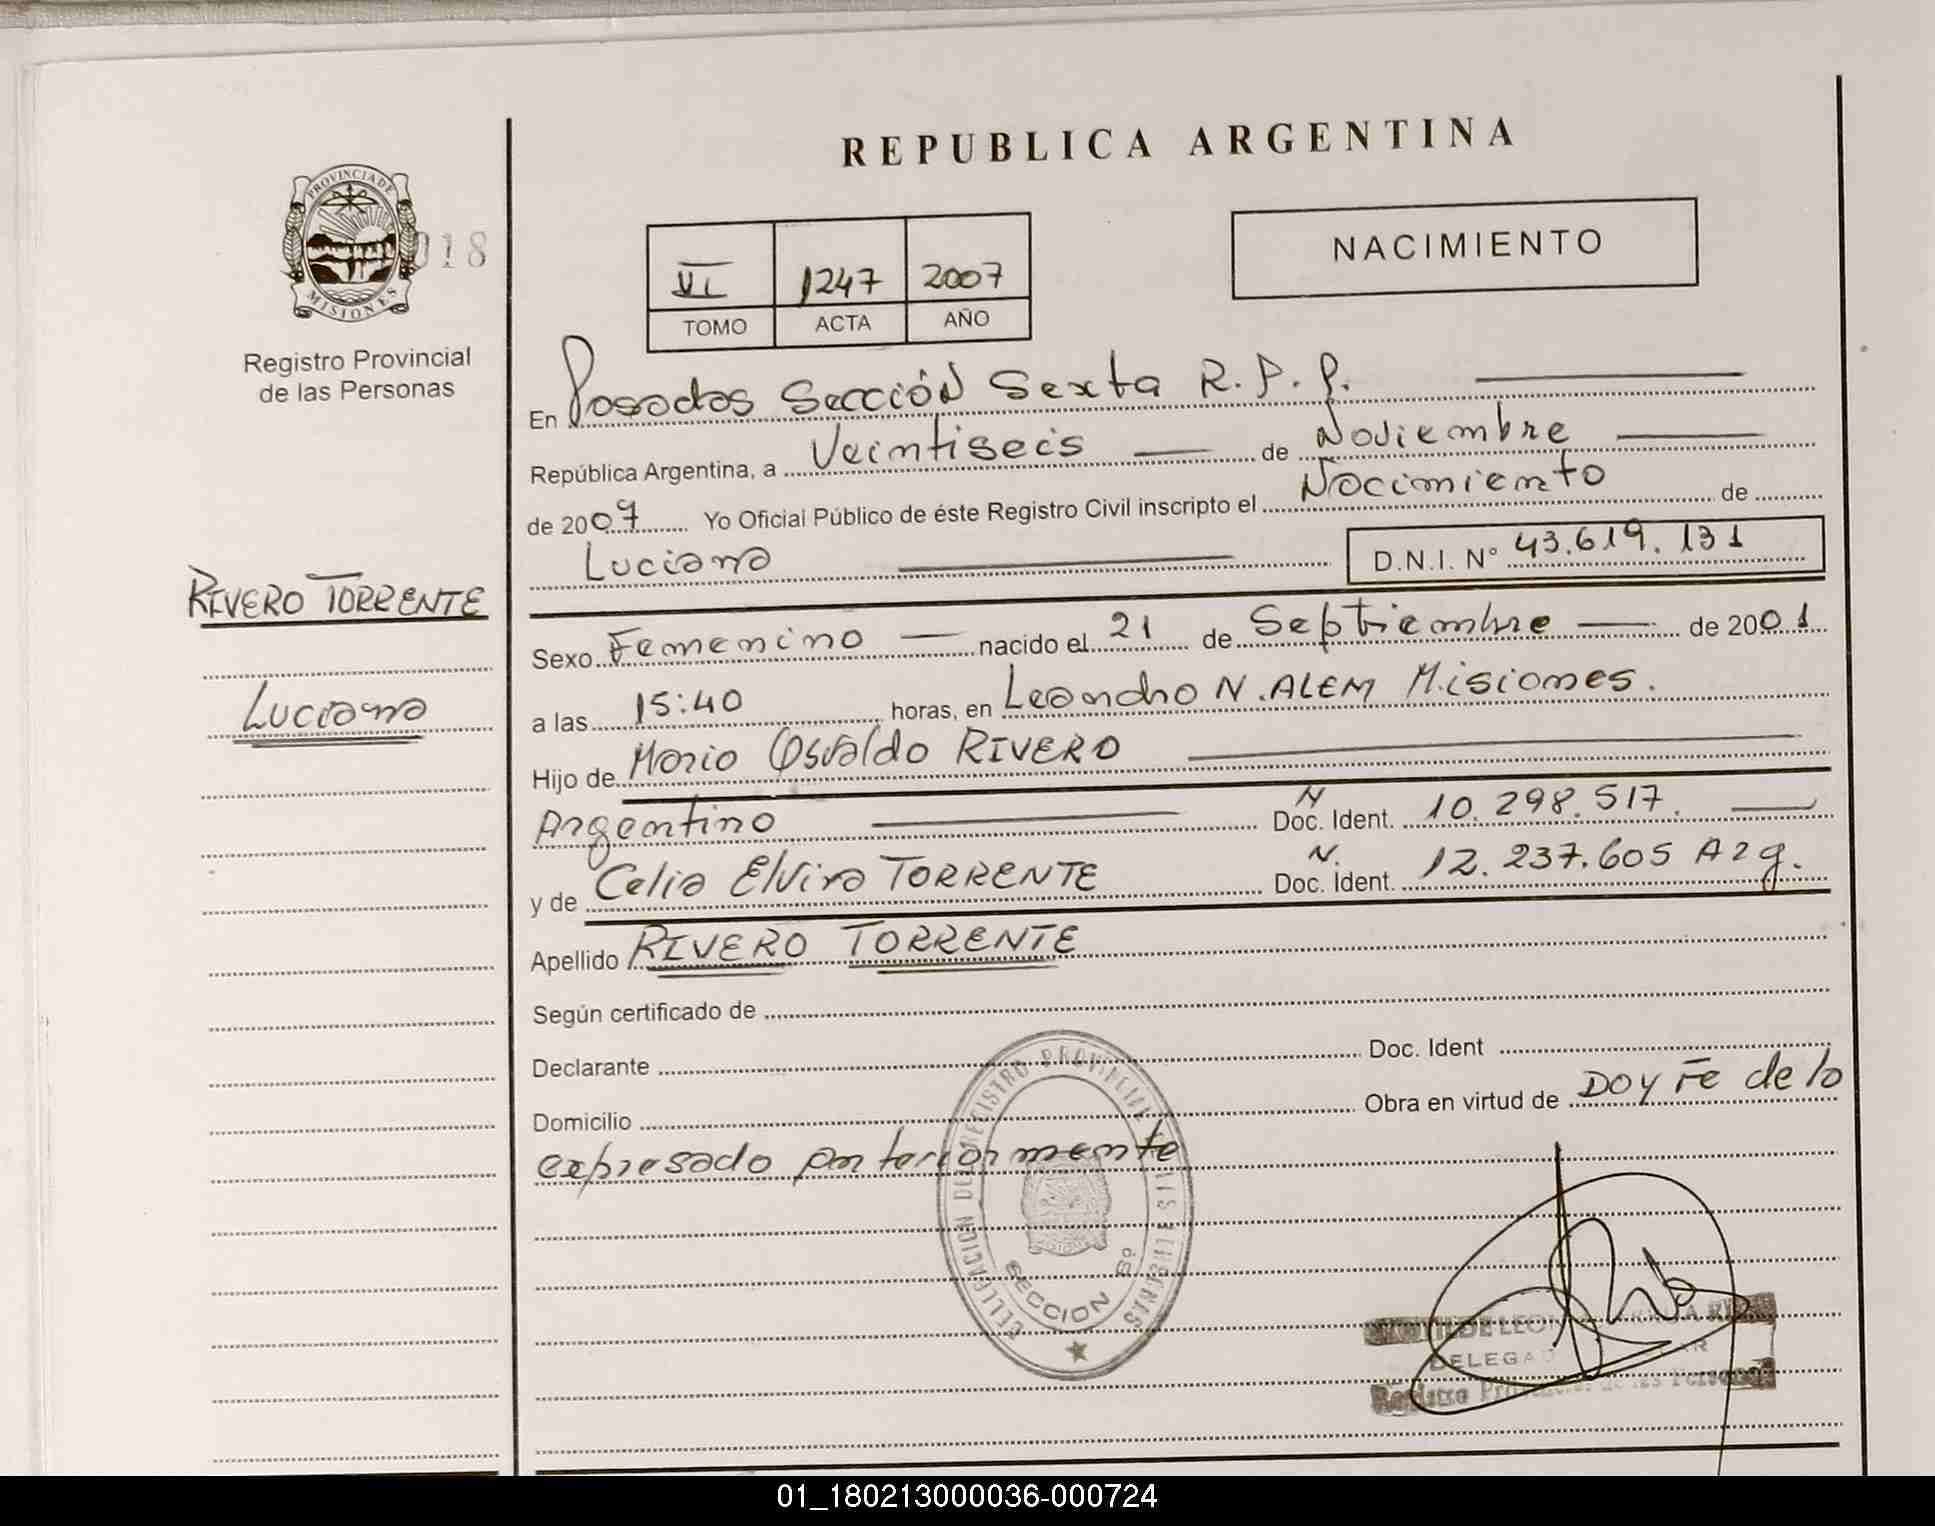 REPUBLICA ARGENTINA
PROVINCIA DE
MISIONES
018
Registro Provincial
de las Personas
VI 1247 2007
TOMO ACTA AÑO
NACIMIENTO
En Posadas Sección Sexta R.P.P.
República Argentina, a Veintiseis de Noviembre
de 2007 Yo Oficial Público de éste Registro Civil inscripto el Nacimiento de
Luciana D.N.I. Nº 43.619.131
RIVERO TORRENTE
Luciana
Sexo Femenino nacido el 21 de Septiembre de 2001
a las 15:40 horas, en Leandro N. ALEM Misiones.
Hijo de Mario Osvaldo RIVERO
Argentino Doc. Ident. N 10.298.517.
y de Celia Elvira TORRENTE Doc. Ident. N. 12.237.605 Arg.
Apellido RIVERO TORRENTE
Según certificado de
Declarante Doc. Ident
Domicilio Obra en virtud de DOY Fe de lo
expresado anteriormente
REGISTRO PROVINCIAL
SECCION
DELEGAD
Registro
01_180213000036-000724